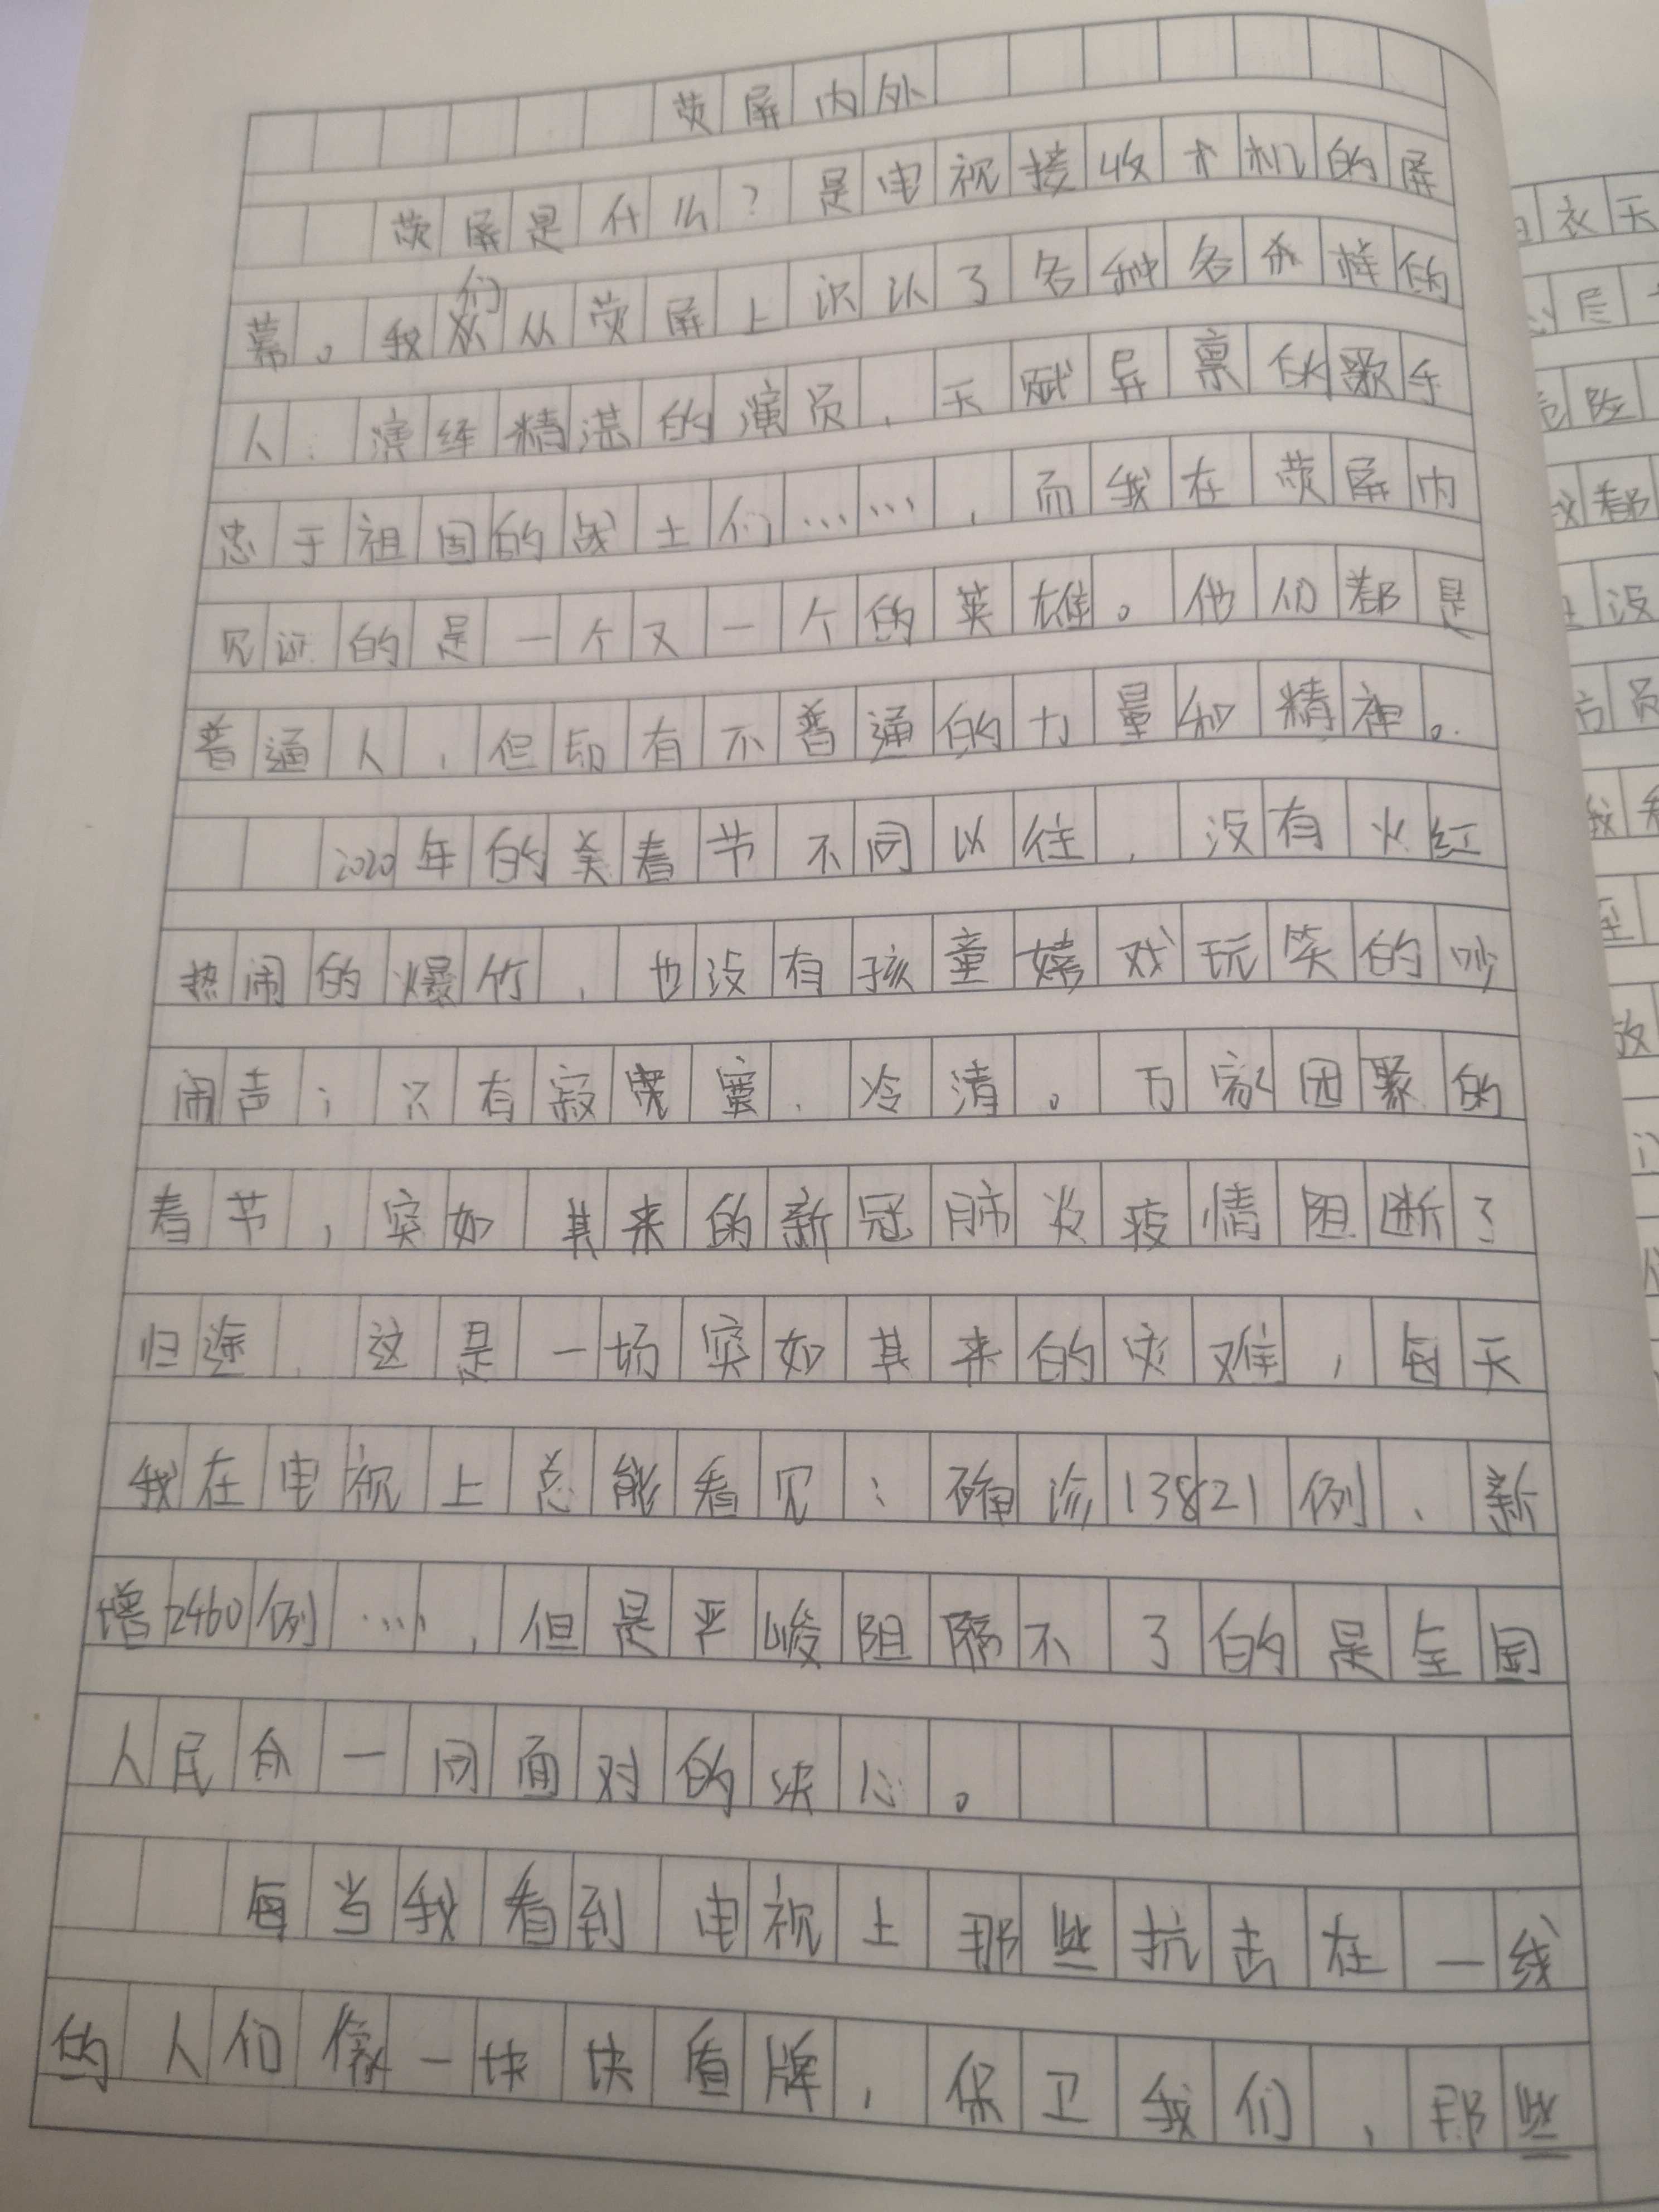 荧屏内外
荧屏是什么？是电视接收机的屏
幕。我们从荧屏上识认了各种各样的
人：演绎精湛的演员，天赋异禀的歌手
忠于祖国的战士们……，而我在荧屏内
见证的是一个又一个的英雄。他们都是
普通人，但却有不普通的力量和精神。
2020年的春节不同以往，没有火红
热闹的爆竹，也没有孩童嬉戏玩笑的吵
闹声；只有寂寞、冷清。万家团聚的
春节，突如其来的新冠肺炎疫情阻断了
归途，这是一场突如其来的灾难，每天
我在电视上总能看见：确诊13821例、新
增2460例…，但是严峻阻隔不了的是全国
人民合一同面对的决心。
每当我看到电视上那些抗击在一线
的人们像一块块盾牌，保卫我们，那些
衣天
尽
危险
都
没
员
我
放